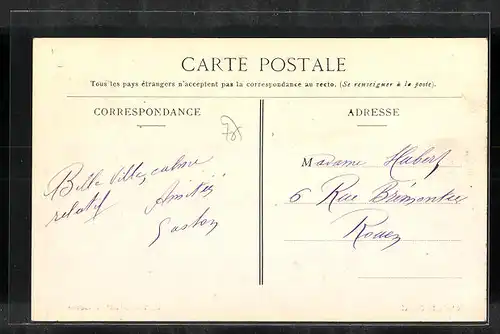 CARTE POSTALE
Tous les pays étrangers n'acceptent pas la correspondance au recto. (Se renseigner à la poste).
CORRESPONDANCE
Belle Ville, calme
relatif
Amitiés
Gaston
ADRESSE
Madame Habert
6 Rue Brémontier
Rouen